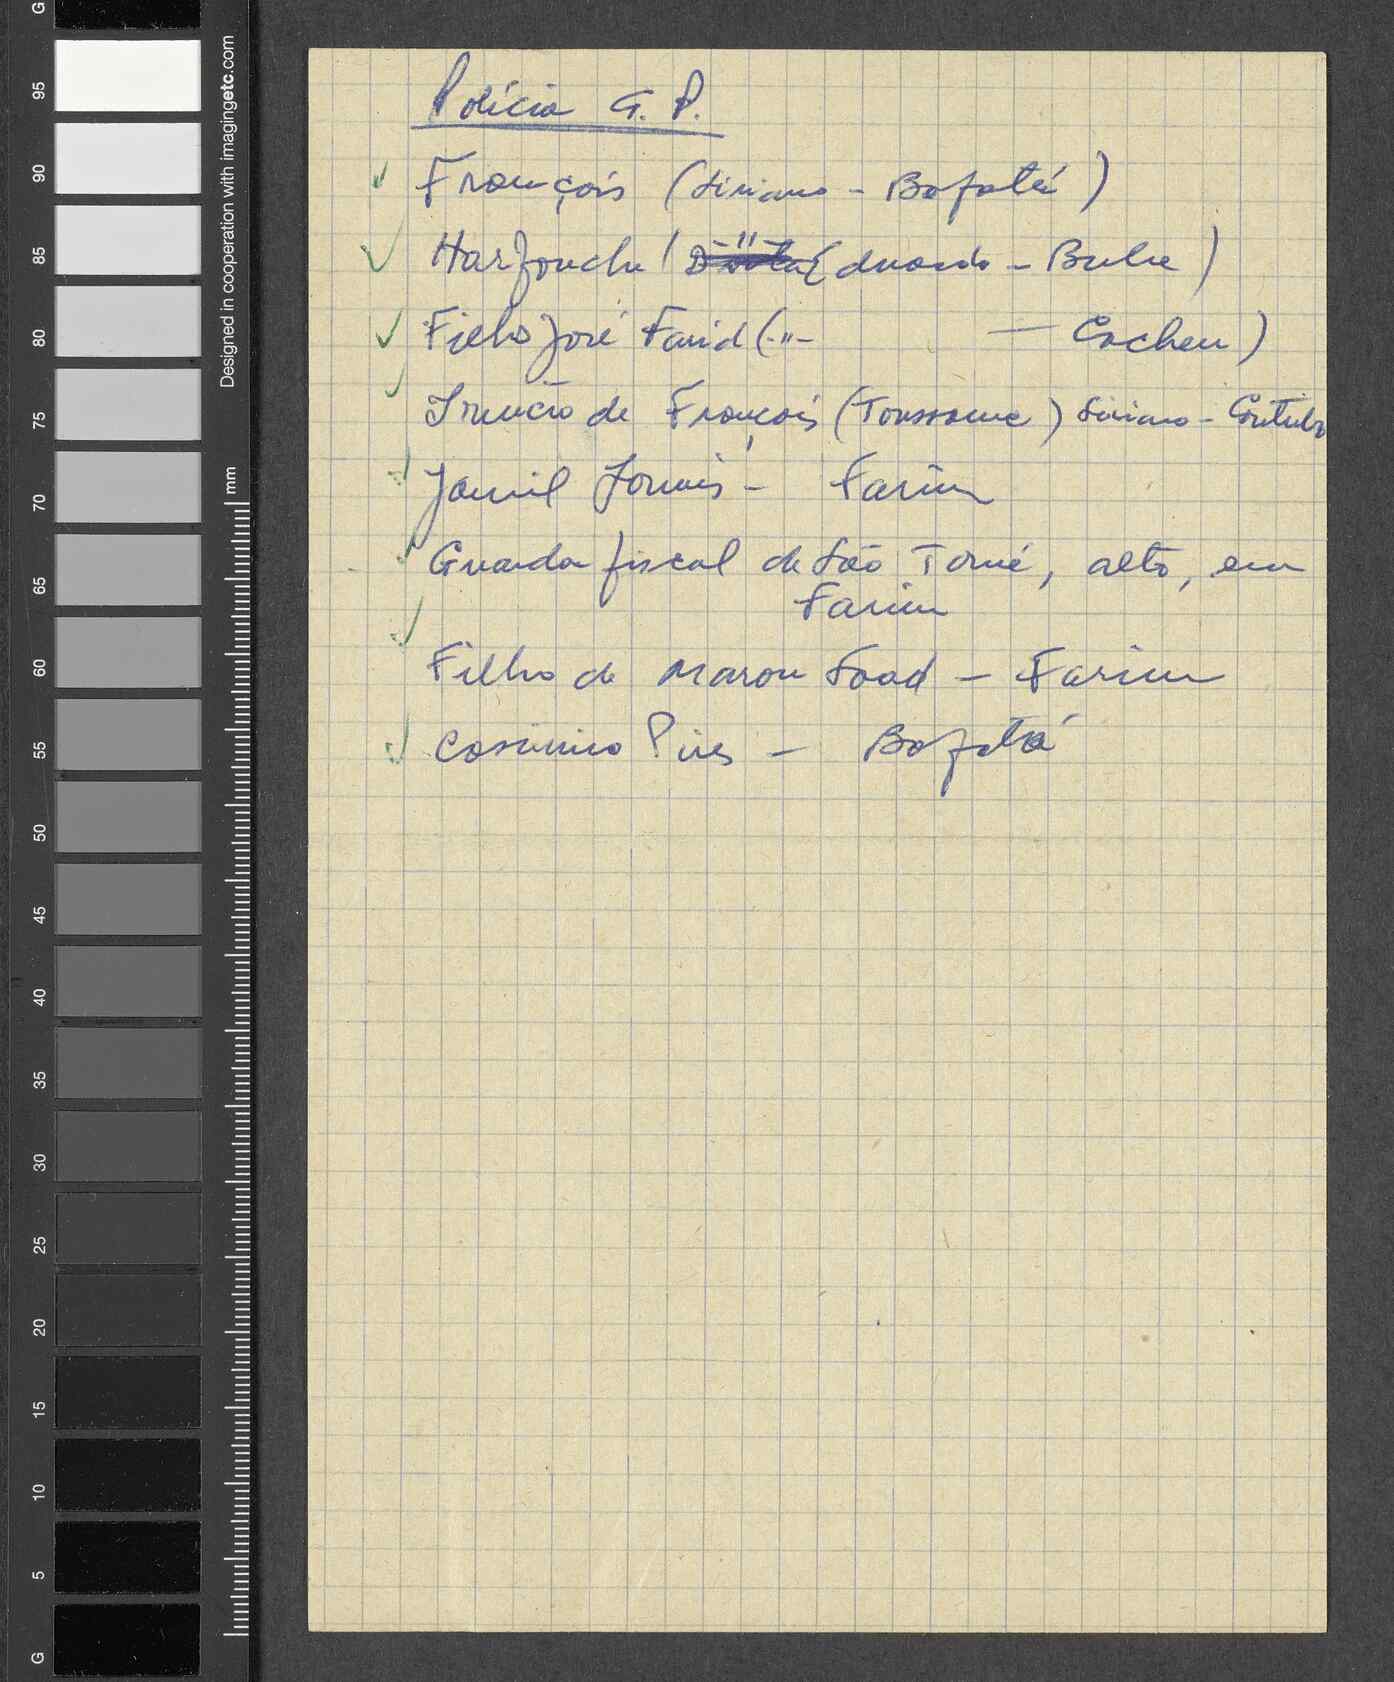 Polícia G. P.
François (Siriano - Bafatá)
Harfouche (Eduardo - Bula)
Filho José Farid (-"- — Cacheu)
Irmão de François (Toussaine) Siriano - Contubo
Jamil Jounis - Farim
Guarda fiscal de São Tomé, alto, em
Farim
Filho de Maron Saad - Farim
Casimiro Pires - Bafatá
Designed in cooperation with imagingetc.com
mm
G
95
90
85
80
75
70
65
60
55
50
45
40
35
30
25
20
15
10
5
G